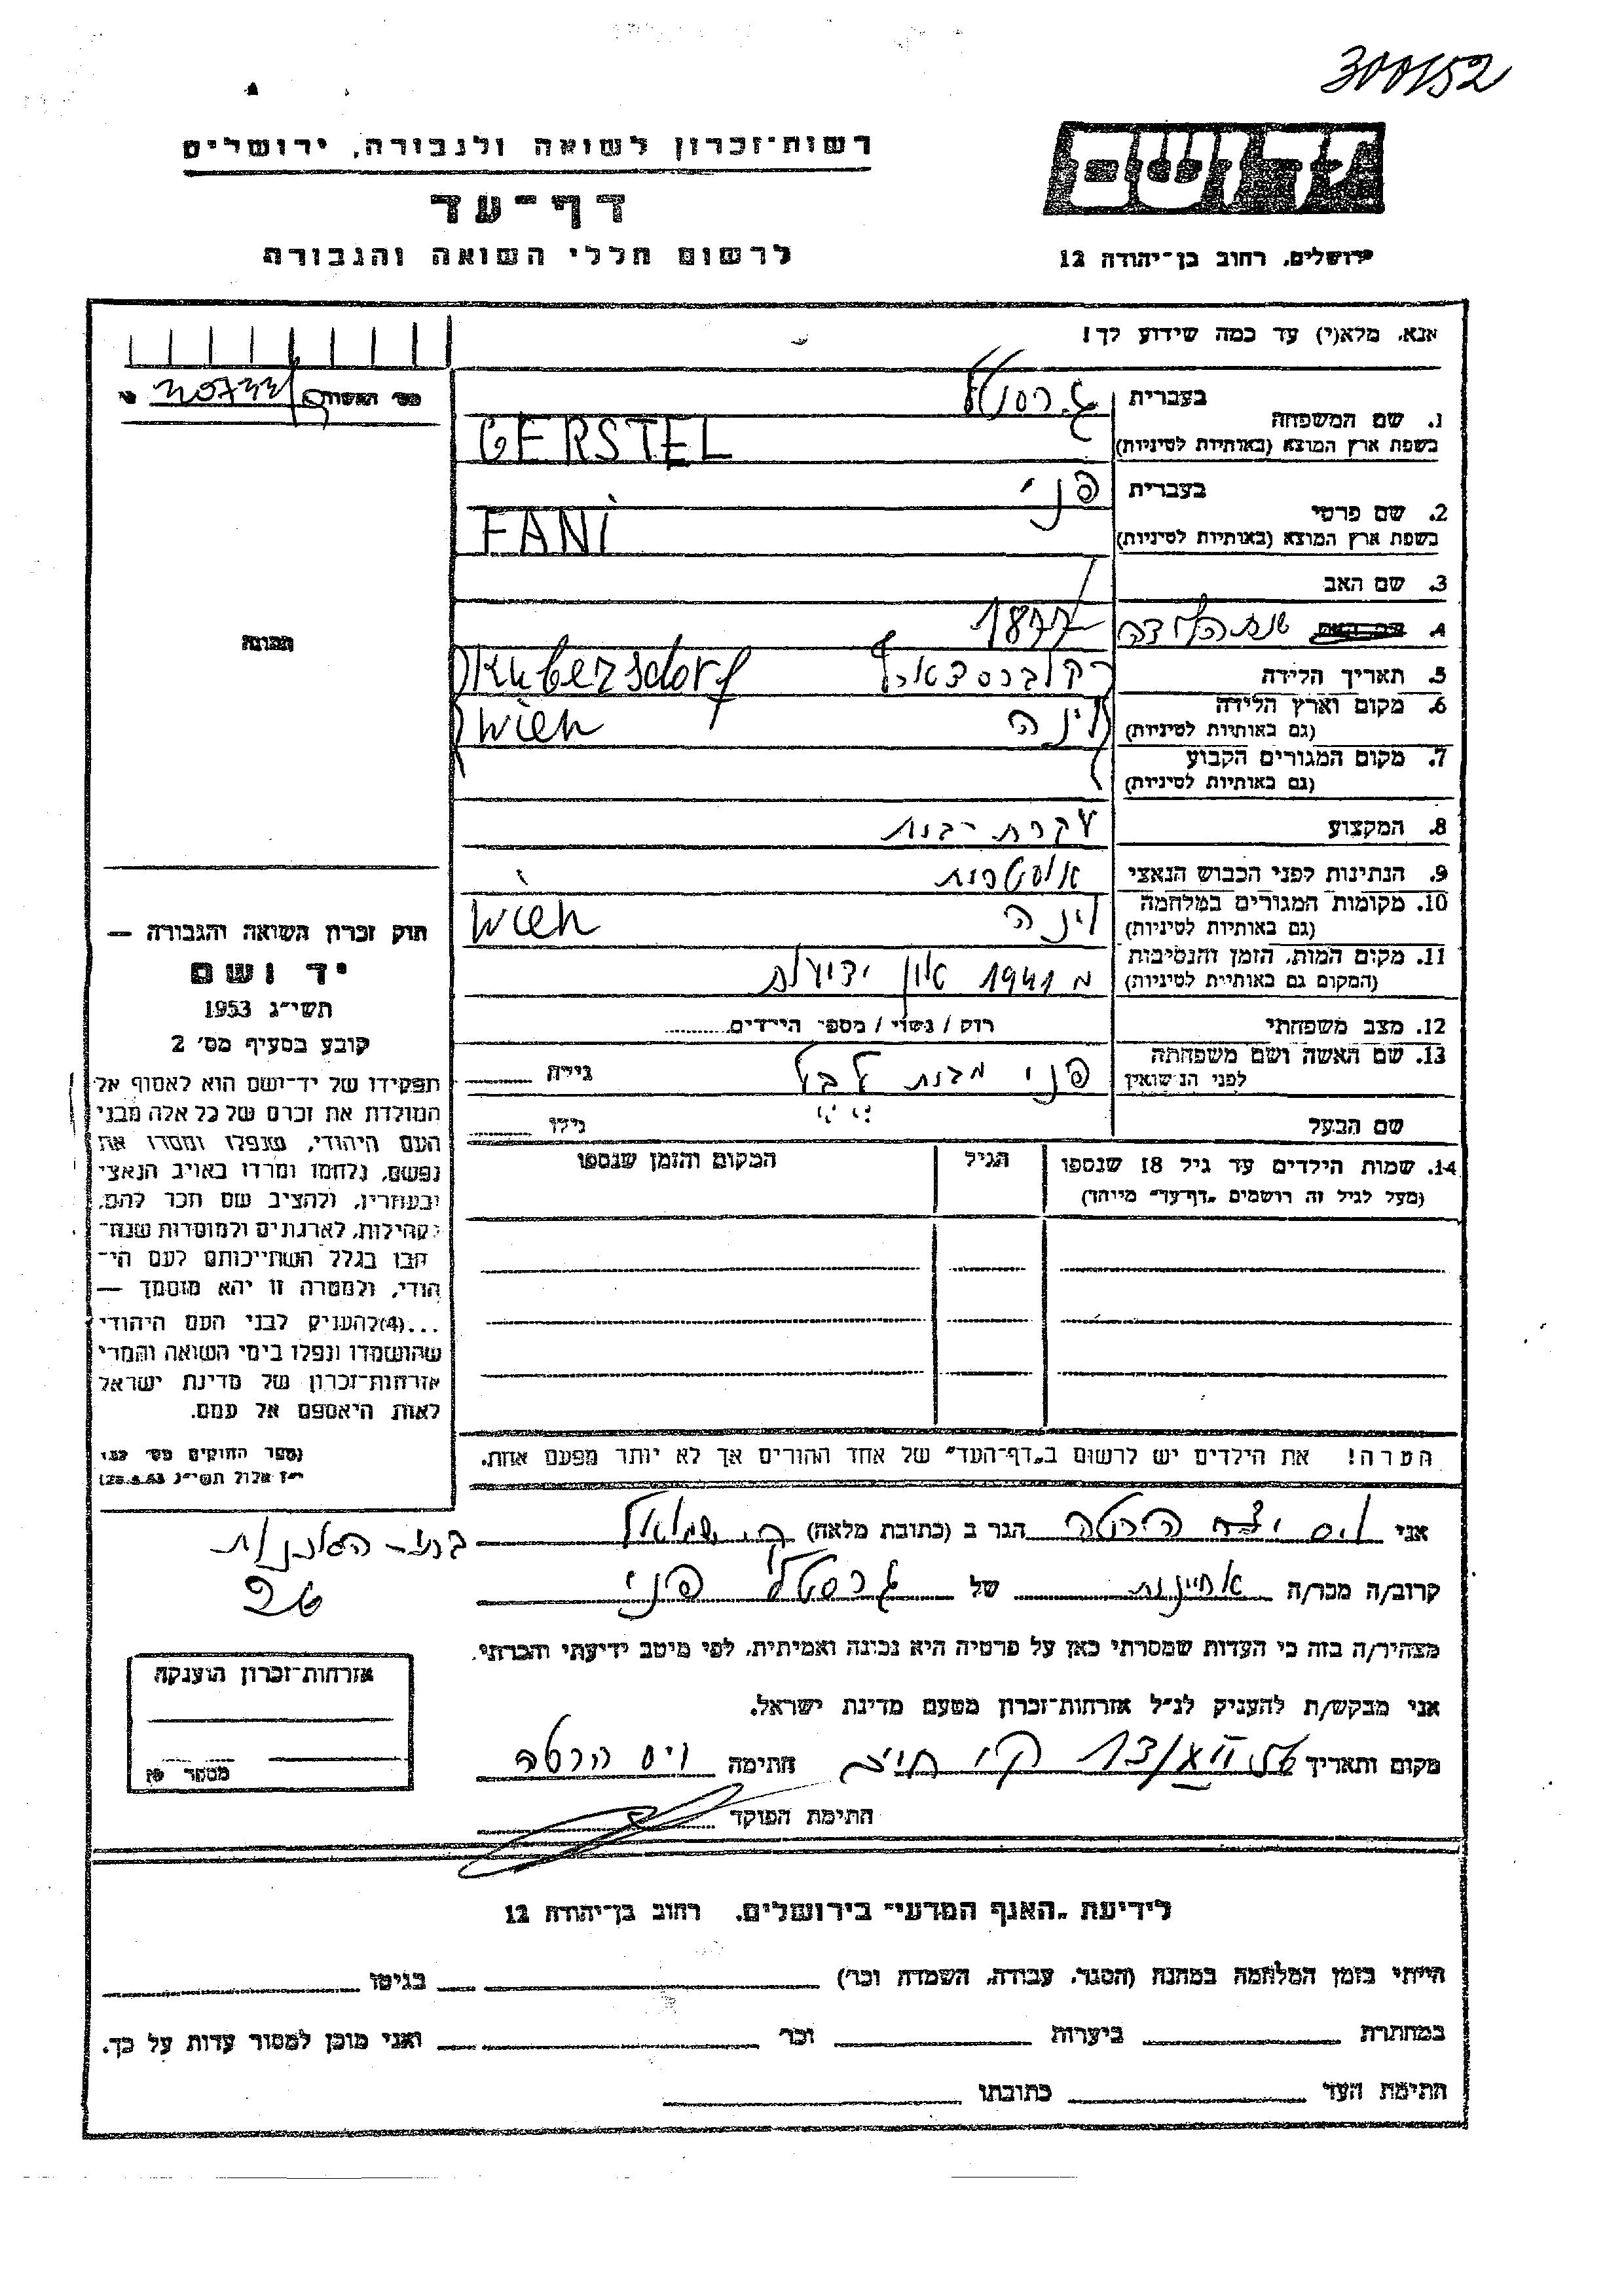 300152
רשות־זכרון לשואה ולגבורה, ירושלים
דף־עד
לרשום חללי השואה והגבורה
ירושלים, רחוב בן־יהודה 12
אנא, מלא(י) עד כמה שידוע לך!
1. שם המשפחה
בעברית גרסטל
בשפת ארץ המוצא (באותיות לטיניות) GERSTEL
2. שם פרטי
בעברית פני
בשפת ארץ המוצא (באותיות לטיניות) FANI
3. שם האב
4. שנת הלידה 1877
5. תאריך הלידה
6. מקום וארץ הלידה
(גם באותיות לטיניות)
Kubersdorf
וינה Wien
7. מקום המגורים הקבוע
(גם באותיות לטיניות)
8. המקצוע עקרת בית
9. הנתינות לפני הכבוש הנאצי אוסטרית
10. מקומות המגורים במלחמה
(גם באותיות לטיניות) וינה Wien
11. מקום המות, הזמן והנסיבות
(המקום גם באותיות לטיניות) מ 1941 אין ידיעות
12. מצב משפחתי רוק / נשוי / מספר הילדים
13. שם האשה ושם משפחתה
לפני הנישואין פני מבית גילה
שם הבעל גילו
14. שמות הילדים עד גיל 18 שנספו
(מעל לגיל זה רושמים „דף־עד" מיוחד)
הגיל
המקום והזמן שנספו
הערה! את הילדים יש לרשום ב„דף־העד" של אחד ההורים אך לא יותר מפעם אחת.
מס' האשור
התמונה
חוק זכרון השואה והגבורה —
יד ושם
תשי״ג 1953
קובע בסעיף מס׳ 2
תפקידו של יד־ושם הוא לאסוף אל
המולדת את זכרם של כל אלה מבני
העם היהודי, שנפלו ומסרו את
נפשם, נלחמו ומרדו באויב הנאצי
ובעוזריו, ולהציב שם וזכר להם,
לקהילות, לארגונים ולמוסדות שנח־
רבו בגלל השתייכותם לעם הי־
הודי, ולמטרה זו יהא מוסמך —
...(4)להעניק לבני העם היהודי
שהושמדו ונפלו בימי השואה והמרי
אזרחות־זכרון של מדינת ישראל
לאות היאספם אל עמם.
(ספר החוקים מס׳ 132,
י״ז אלול תשי״ג 28.8.53)
אני ויס הרטה הגר ב (כתובת מלאה) ק. שמואל
26
קרוב/ה מכר/ה אחיינית של גרסטל פני
מצהיר/ה בזה כי העדות שמסרתי כאן על פרטיה היא נכונה ואמיתית, לפי מיטב ידיעתי והכרתי.
אני מבקש/ת להעניק לנ״ל אזרחות־זכרון מטעם מדינת ישראל.
מקום ותאריך ק. חיים חתימה ויס הרטה
חתימת הפוקד
אזרחות־זכרון הוענקה
מספר
לידיעת „האגף המדעי" בירושלים, רחוב בן־יהודה 12
הייתי בזמן המלחמה במחנה (הסגר, עבודה, השמדה וכו׳) בגיטו
במחתרת ביערות וכו׳ ואני מוכן למסור עדות על כך.
חתימת העד כתובתו